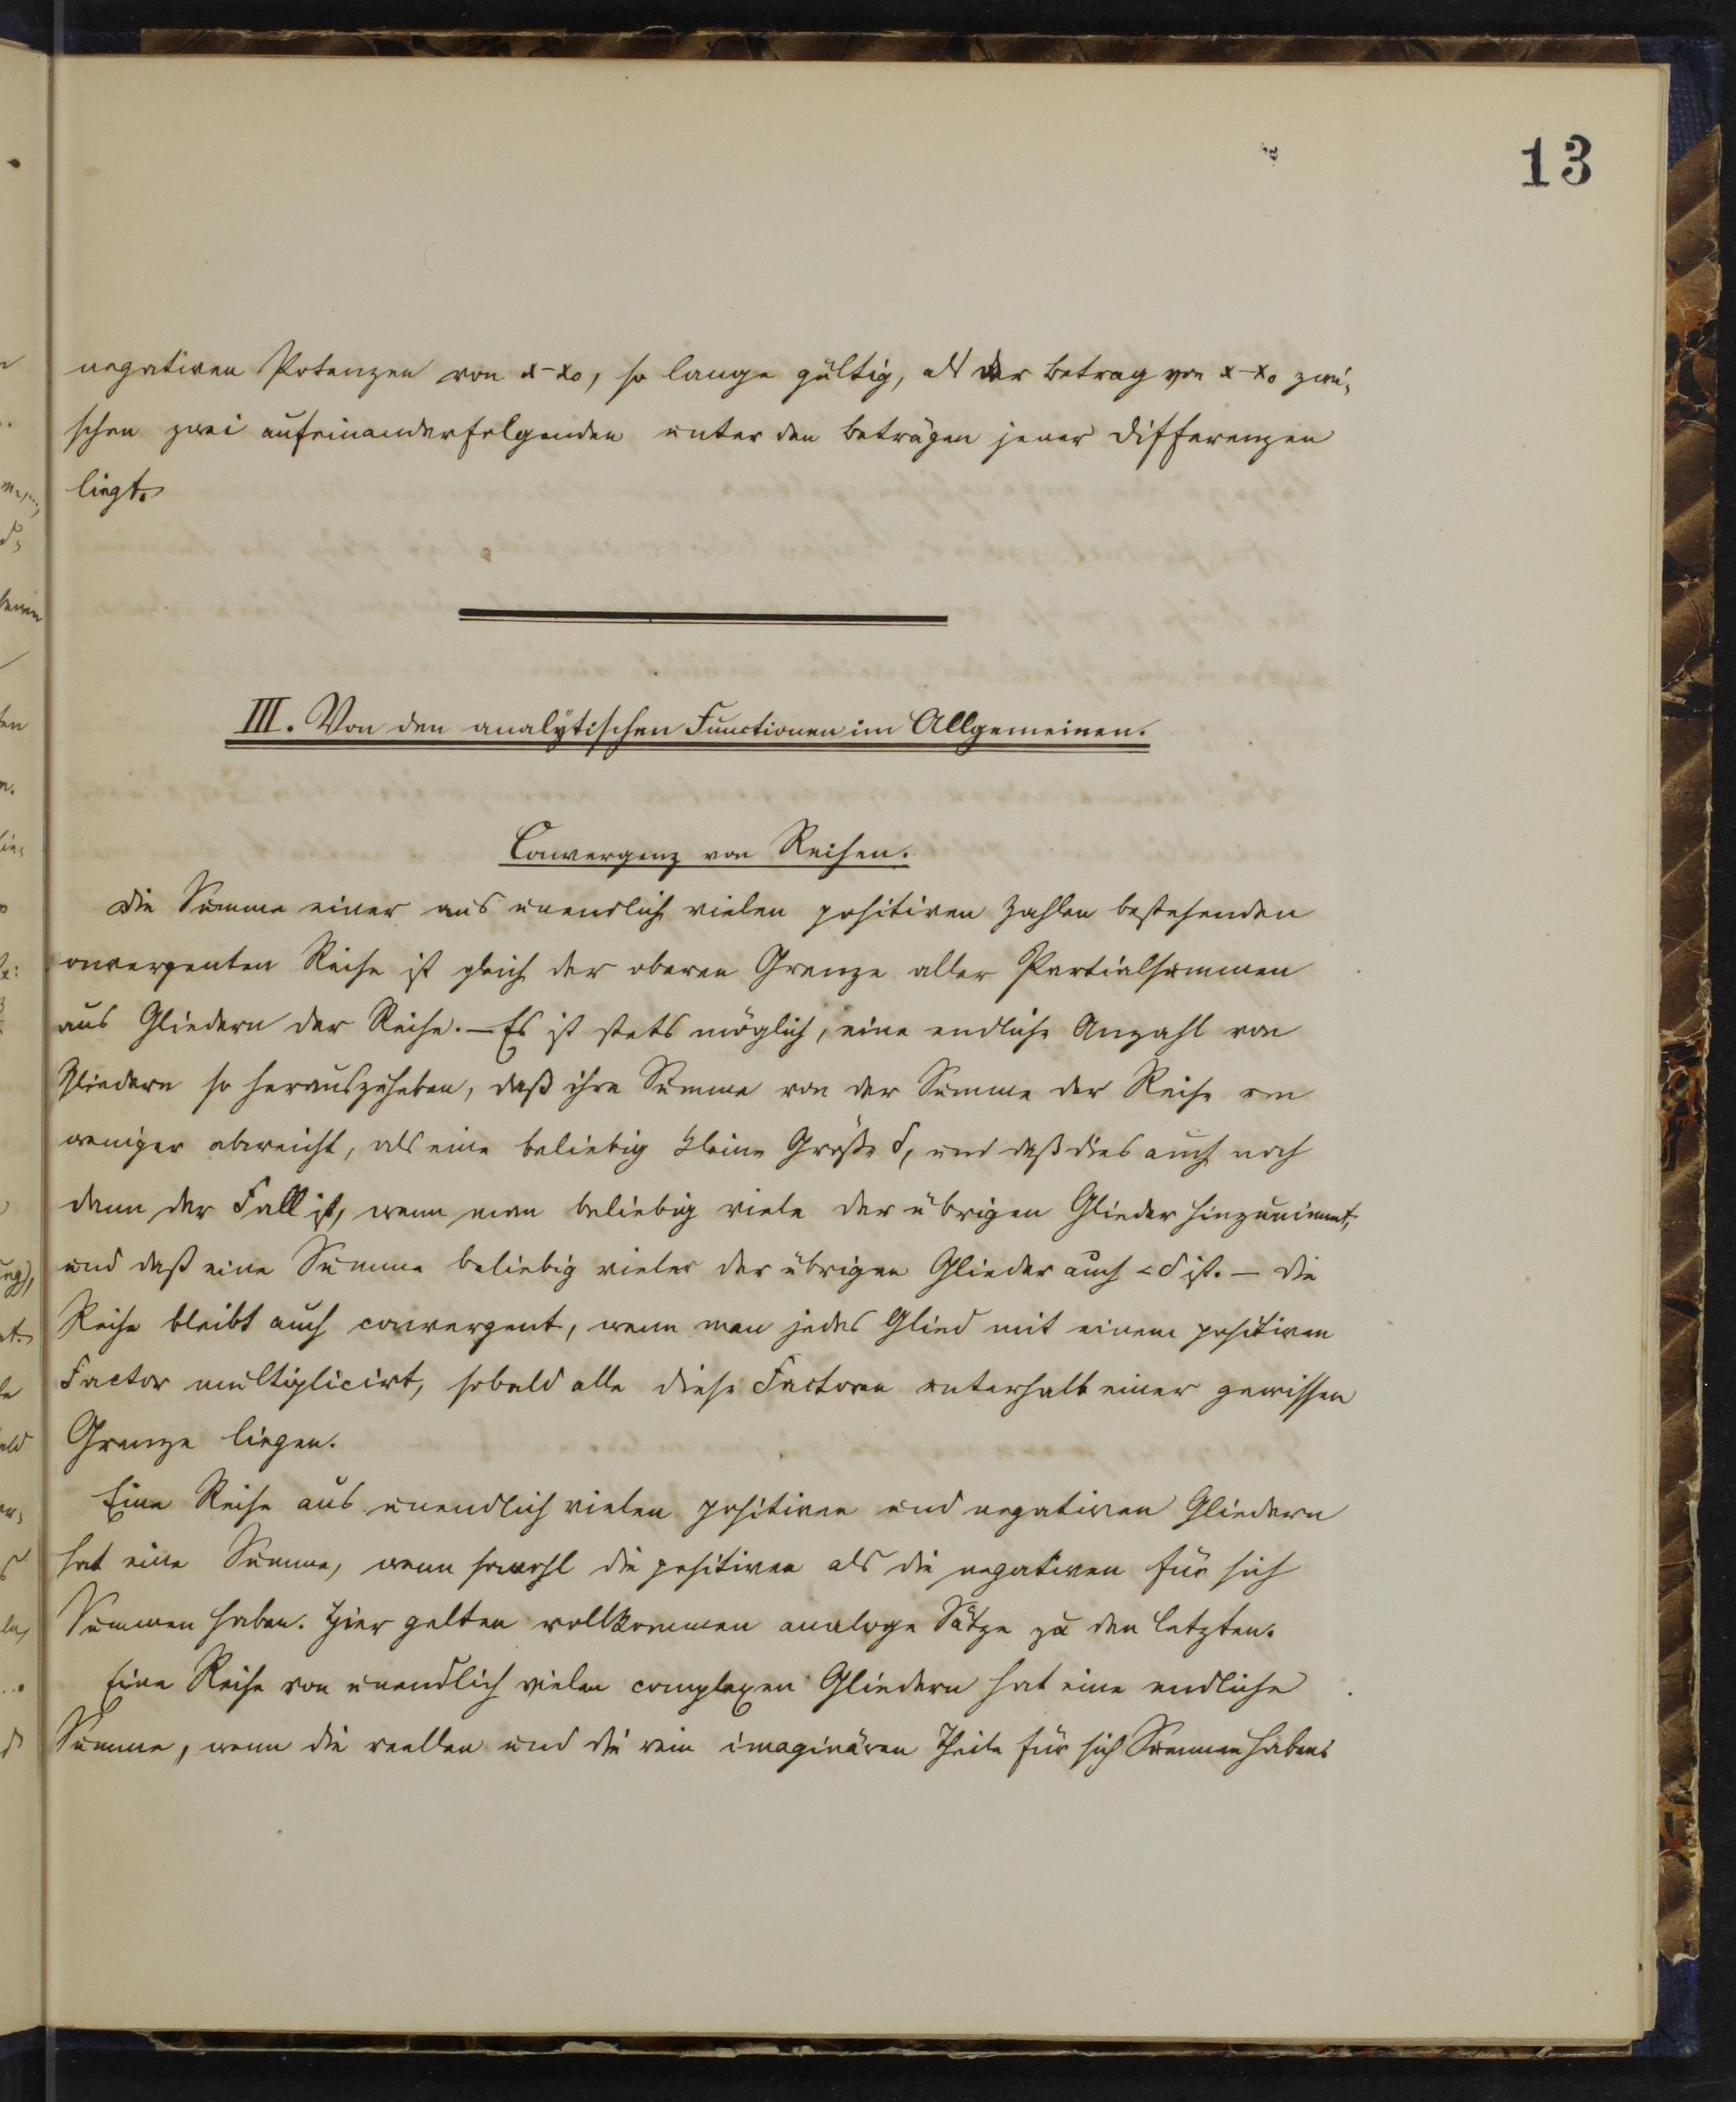 13
negativen Potenzen von x-x₀, so lange gültig, als der Betrag von x-x₀ zwi-
schen zwei aufeinanderfolgenden unter den Beträgen jener Differenzen
liegt.
III. Von den analÿtischen Functionen im Allgemeinen.
Convergenz von Reihen.
Die Summe einer aus unendlich vielen positiven Zahlen bestehenden
onvergenten Reihe ist gleich der oberen Grenze aller Partialsummen
aus Gliedern der Reihe. — Es ist stets möglich, eine endliche Anzahl von
Gliedern so herauszuheben, daß ihre Summe von der Summe der Reihe um
weniger abweicht, als eine beliebig kleine Größe δ, und daß dies auch noch
dann der Fall ist, wenn man beliebig viele der übrigen Glieder hinzunimmt,
und daß eine Summe beliebig vieler der übrigen Glieder auch < δ ist. — Die
Reihe bleibt auch convergent, wenn man jedes Glied mit einem positiven
Factor multiplicirt, sobald alle diese Factoren unterhalb einer gewissen
Grenze liegen.
Eine Reihe aus unendlich vielen positiven und negativen Gliedern
hat eine Summe, wenn sowohl die positiven als die negativen für sich
Summen haben. Hier gelten vollkommen analoge Sätze zu den letzten.
Eine Reihe von unendlich vielen complexen Gliedern hat eine endliche
Summe, wenn die reellen und die rein imaginären Theile für sich Summen haben;